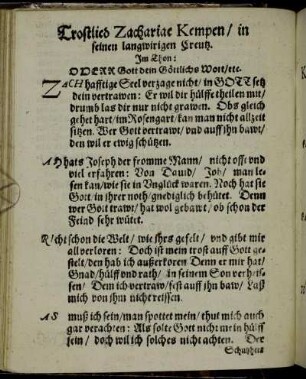 Trostlied Zachariae Kempen/ in
seinen langwirigen Creutz.
Im Thon:
O DERR Gott dein Göttlichs Wort/ etc.
ZACH hafftige Seel verzage nicht/ in GOTT setz
dein vertrawen: Er wil dir hülffe theilen mit/
drumb las dir nur nicht grawen. Obs gleich
gehet hart/ im Rosengart/ kan man nicht allzeit
sitzen. Wer Gott vertrawt/ und auff ihn bawt/
den wil er ewig schützen.
AH hats Joseph der fromme Mann/ nicht offt und
viel erfahren: Von David/ Job/ man le=
sen kan/ wie sie in Unglück waren. Noch hat sie
Gott in ihrer noth/ gnediglich behütet. Denn
wer Gott trawt/ hat wol gebawt/ ob schon der
Feind sehr wütet.
Richt schon die Welt/ wie ihrs gefelt/ und gibt mir
all verloren: Doch ist mein trost auff Gott ge=
stelt/ den hab ich außerkoren Denn er mir hat/
Gnad/ hülff und rath/ in seinem Son verheis=
sen/ Dem ich vertraw/ fest auff ihn baw/ Laß
mich von ihm nicht reissen.
AS muß ich sein/ man spottet mein/ thut mich auch
gar verachten: Als solte Gott nicht mein hülff
sein/ doch wil ich solches nicht achten. Der